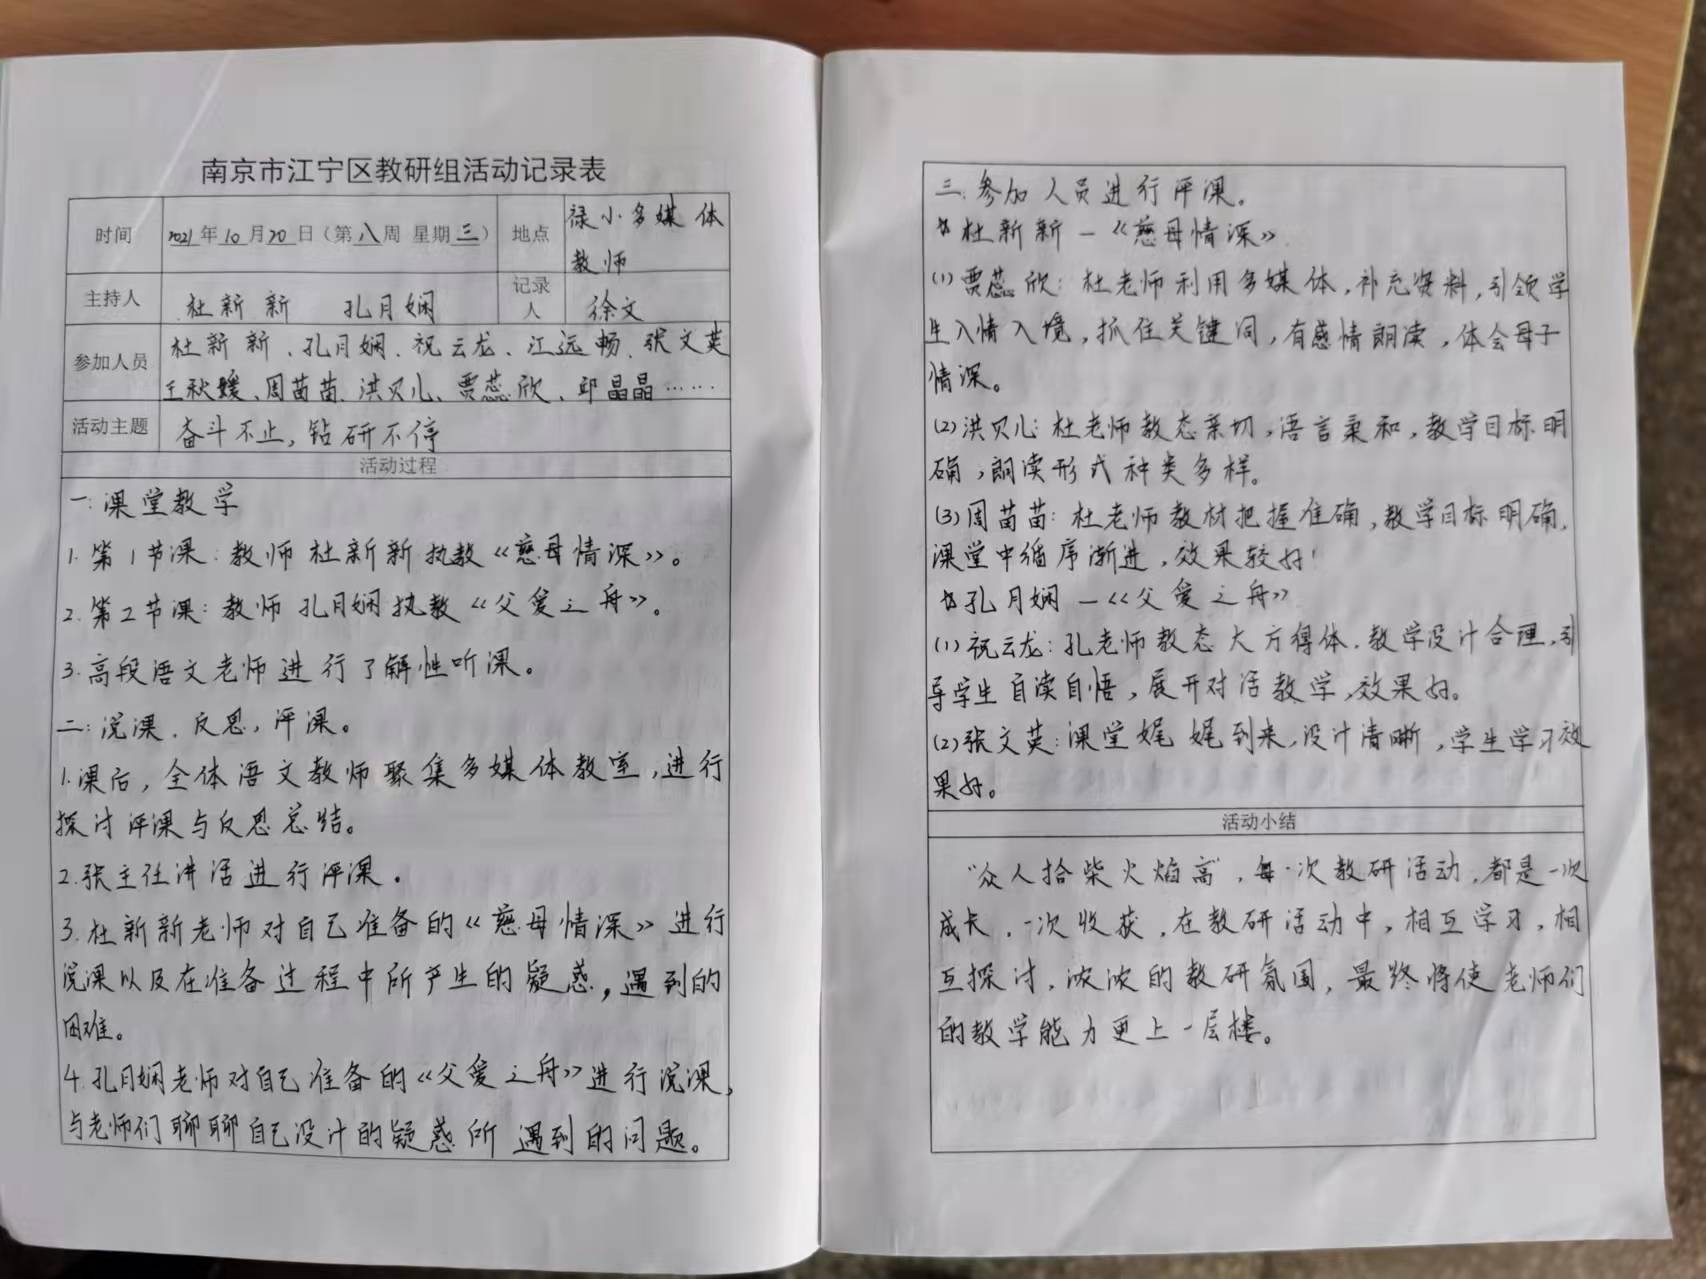 南京市江宁区教研组活动记录表
时间 2021年10月20日（第八周 星期三） 地点 禄小多媒体
教师
主持人 杜新新 孔月娴 记录人 徐文
参加人员 杜新新、孔月娴、祝云龙、江远畅、张文英
王秋媛、周苗苗、洪贝儿、贾蕊欣、邱晶晶……
活动主题 奋斗不止，钻研不停
活动过程
一：课堂教学
1.第1节课：教师杜新新执教《慈母情深》。
2.第2节课：教师孔月娴执教《父爱之舟》。
3.高段语文老师进行了解性听课。
二：说课、反思，评课。
1.课后，全体语文教师聚集多媒体教室，进行
探讨评课与反思总结。
2.张主任讲话进行评课。
3.杜新新老师对自己准备的《慈母情深》进行
说课以及在准备过程中所产生的疑惑，遇到的
困难。
4.孔月娴老师对自己准备的《父爱之舟》进行说课，
与老师们聊聊自己设计的疑惑所遇到的问题。
三：参加人员进行评课。
杜新新—《慈母情深》
(1)贾蕊欣：杜老师利用多媒体，补充资料，引领学
生入情入境，抓住关键词，有感情朗读，体会母子
情深。
(2)洪贝儿：杜老师教态亲切，语言柔和，教学目标明
确，朗读形式种类多样。
(3)周苗苗：杜老师教材把握准确，教学目标明确，
课堂中循序渐进，效果较好！
孔月娴—《父爱之舟》
(1)祝云龙：孔老师教态大方得体，教学设计合理，引
导学生自读自悟，展开对话教学，效果好。
(2)张文英：课堂娓娓到来，设计清晰，学生学习效
果好。
活动小结
“众人拾柴火焰高”，每一次教研活动，都是一次
成长，一次收获，在教研活动中，相互学习，相
互探讨，浓浓的教研氛围，最终将使老师们
的教学能力更上一层楼。